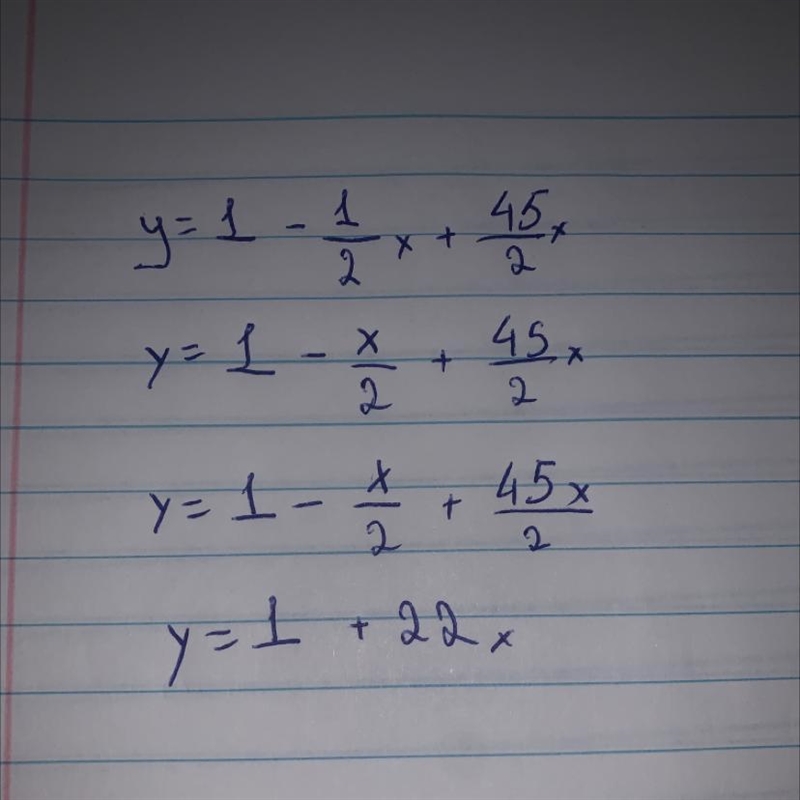 y = 1 - 1/2 x + 45/2 x
y = 1 - x/2 + 45/2 x
y = 1 - x/2 + 45x/2
y = 1 + 22x